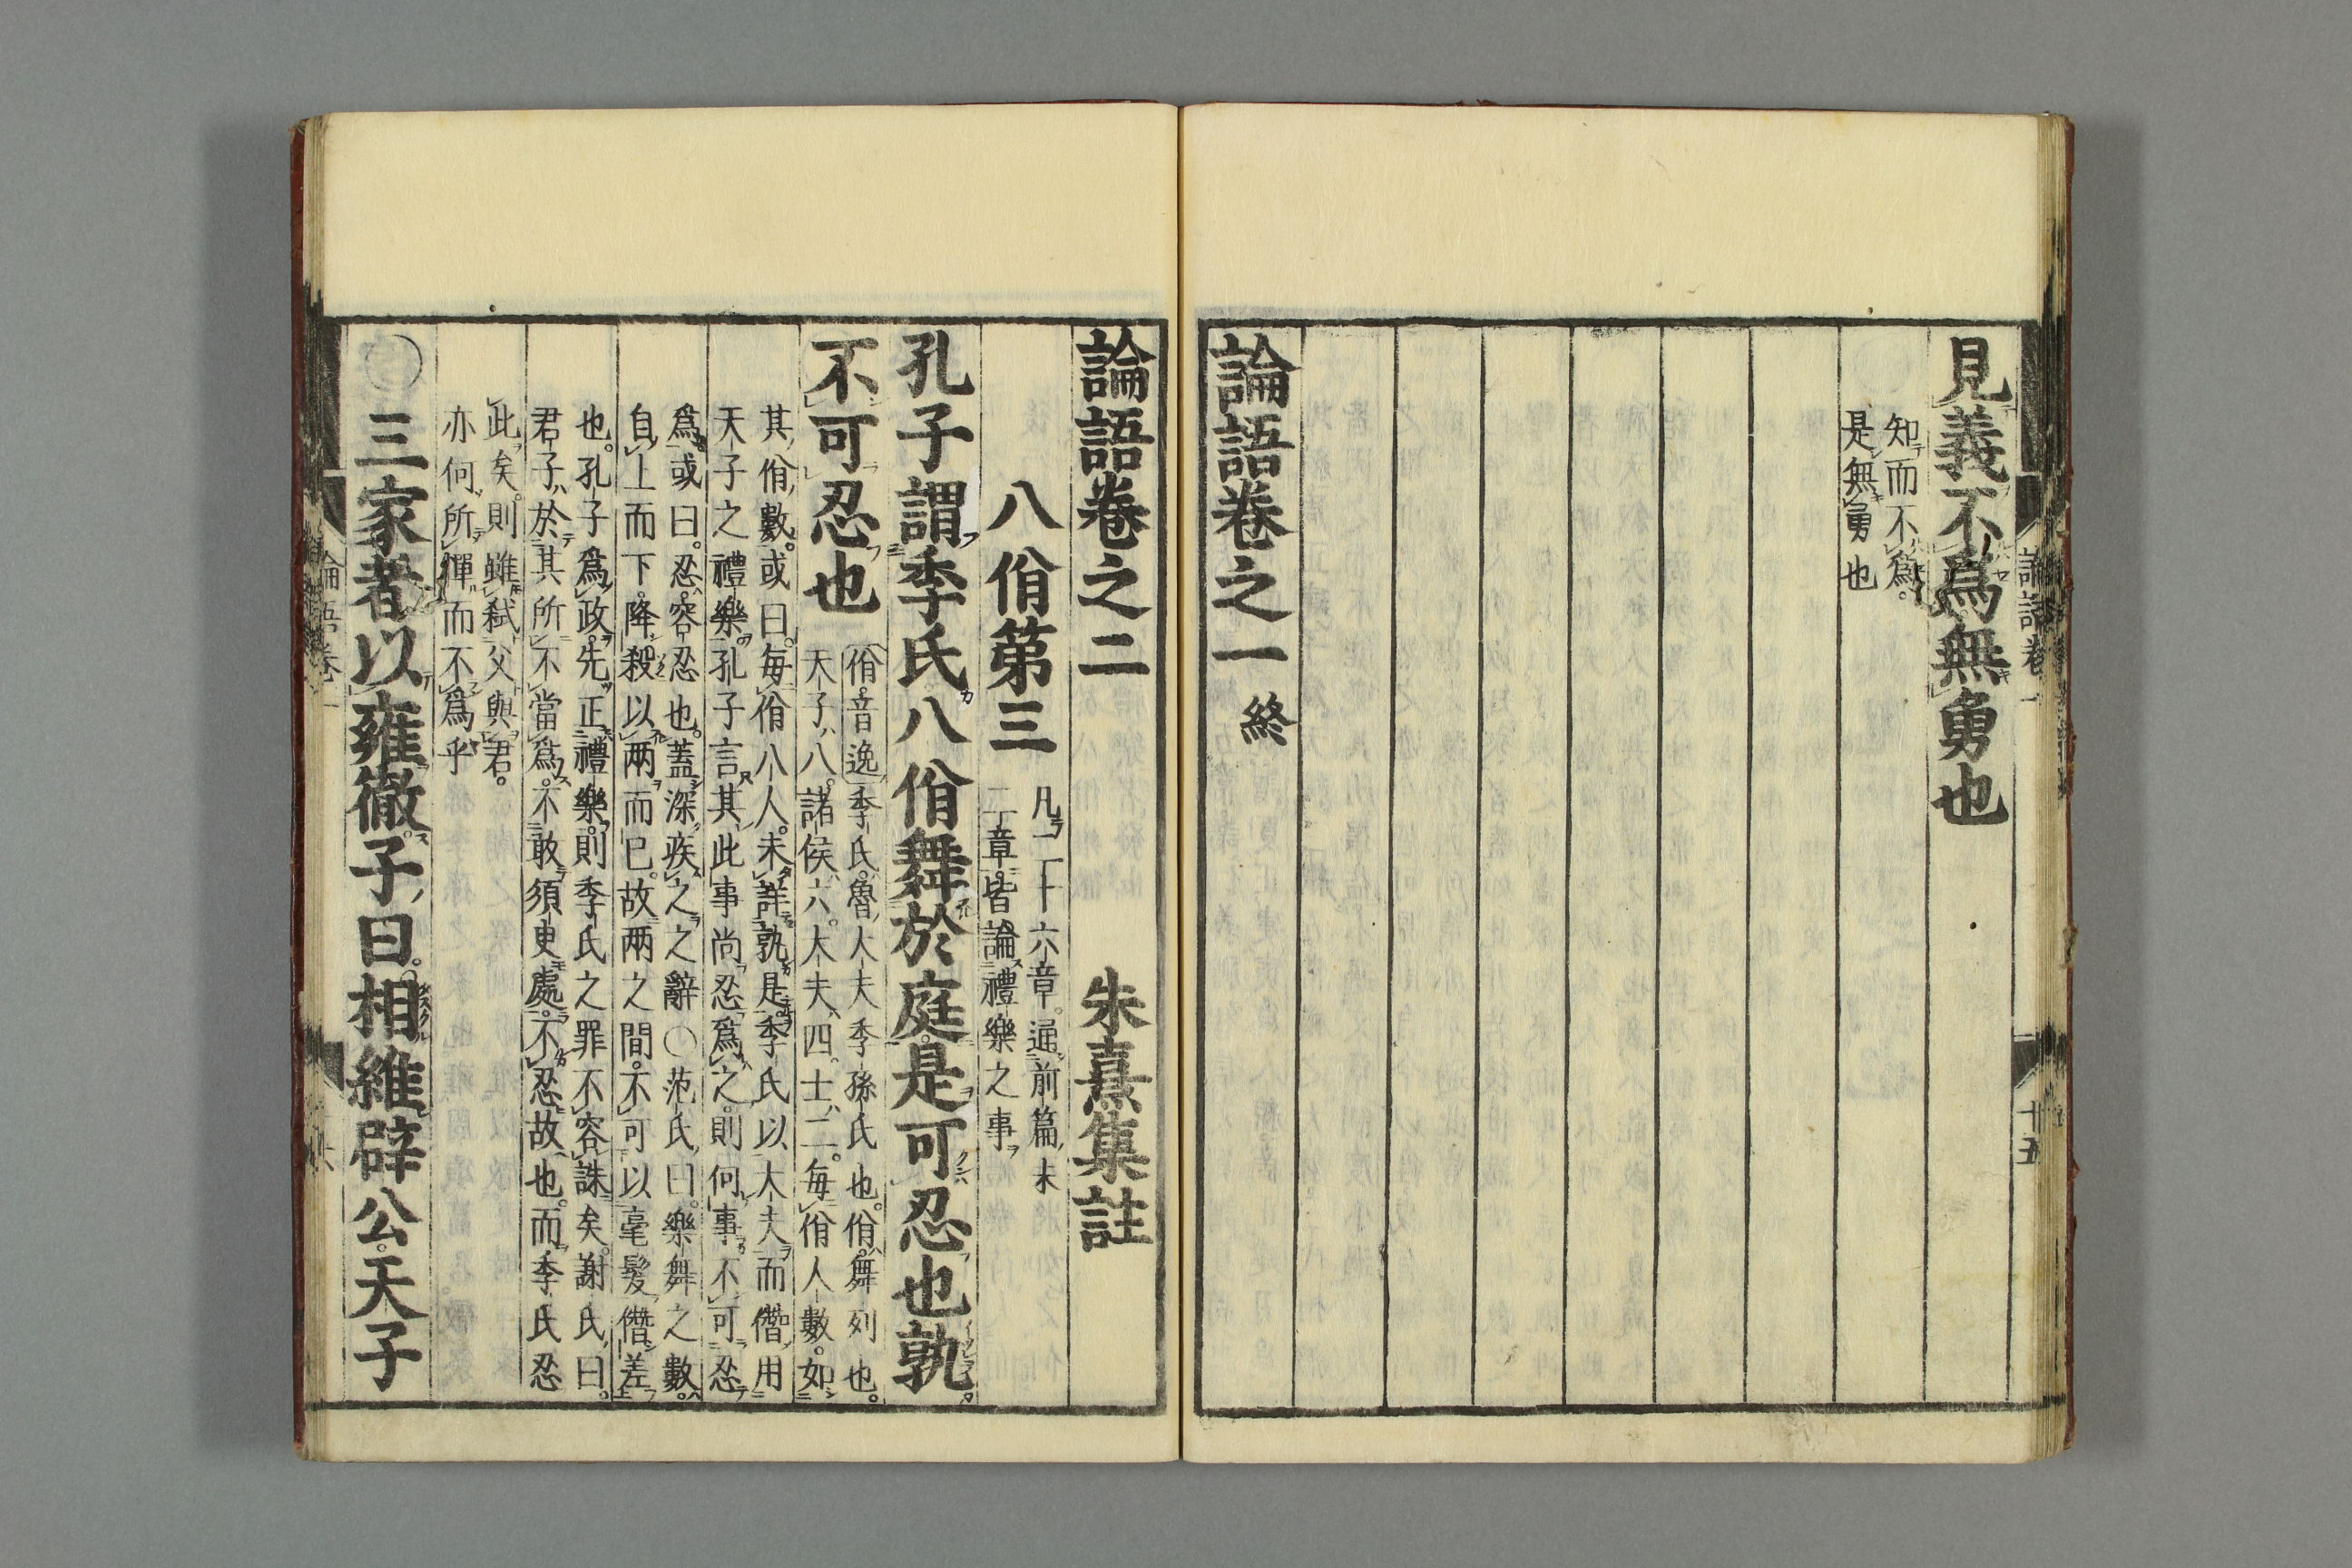 見義不爲無勇也
知而不爲。
是無勇也
論語卷之一 終
論語卷之二 朱熹集註
八佾第三
凡二十六章。通前篇末
二章。皆論禮樂之事
孔子謂季氏八佾舞於庭是可忍也孰
不可忍也
佾音逸 季氏。魯大夫季孫氏也。佾。舞列也。
天子八。諸侯六。大夫四。士二。每佾人數。如
其佾數。或曰。每佾八人。未詳孰是。季氏以大夫而僭用
天子之禮樂。孔子言其此事尚忍爲之。則何事不可忍
爲。或曰。忍。容忍也。蓋深疾之之辭○范氏曰。樂舞之數。
自上而下。降殺以兩而已。故兩之間。不可以毫髮僭差
也。孔子爲政。先正禮樂。則季氏之罪不容誅矣。謝氏曰。
君子於其所不當爲。不敢須臾處。不忍故也。而季氏忍
此矣。則雖弒父與君。
亦何所憚而不爲乎
○三家者以雍徹。子曰。相維辟公。天子